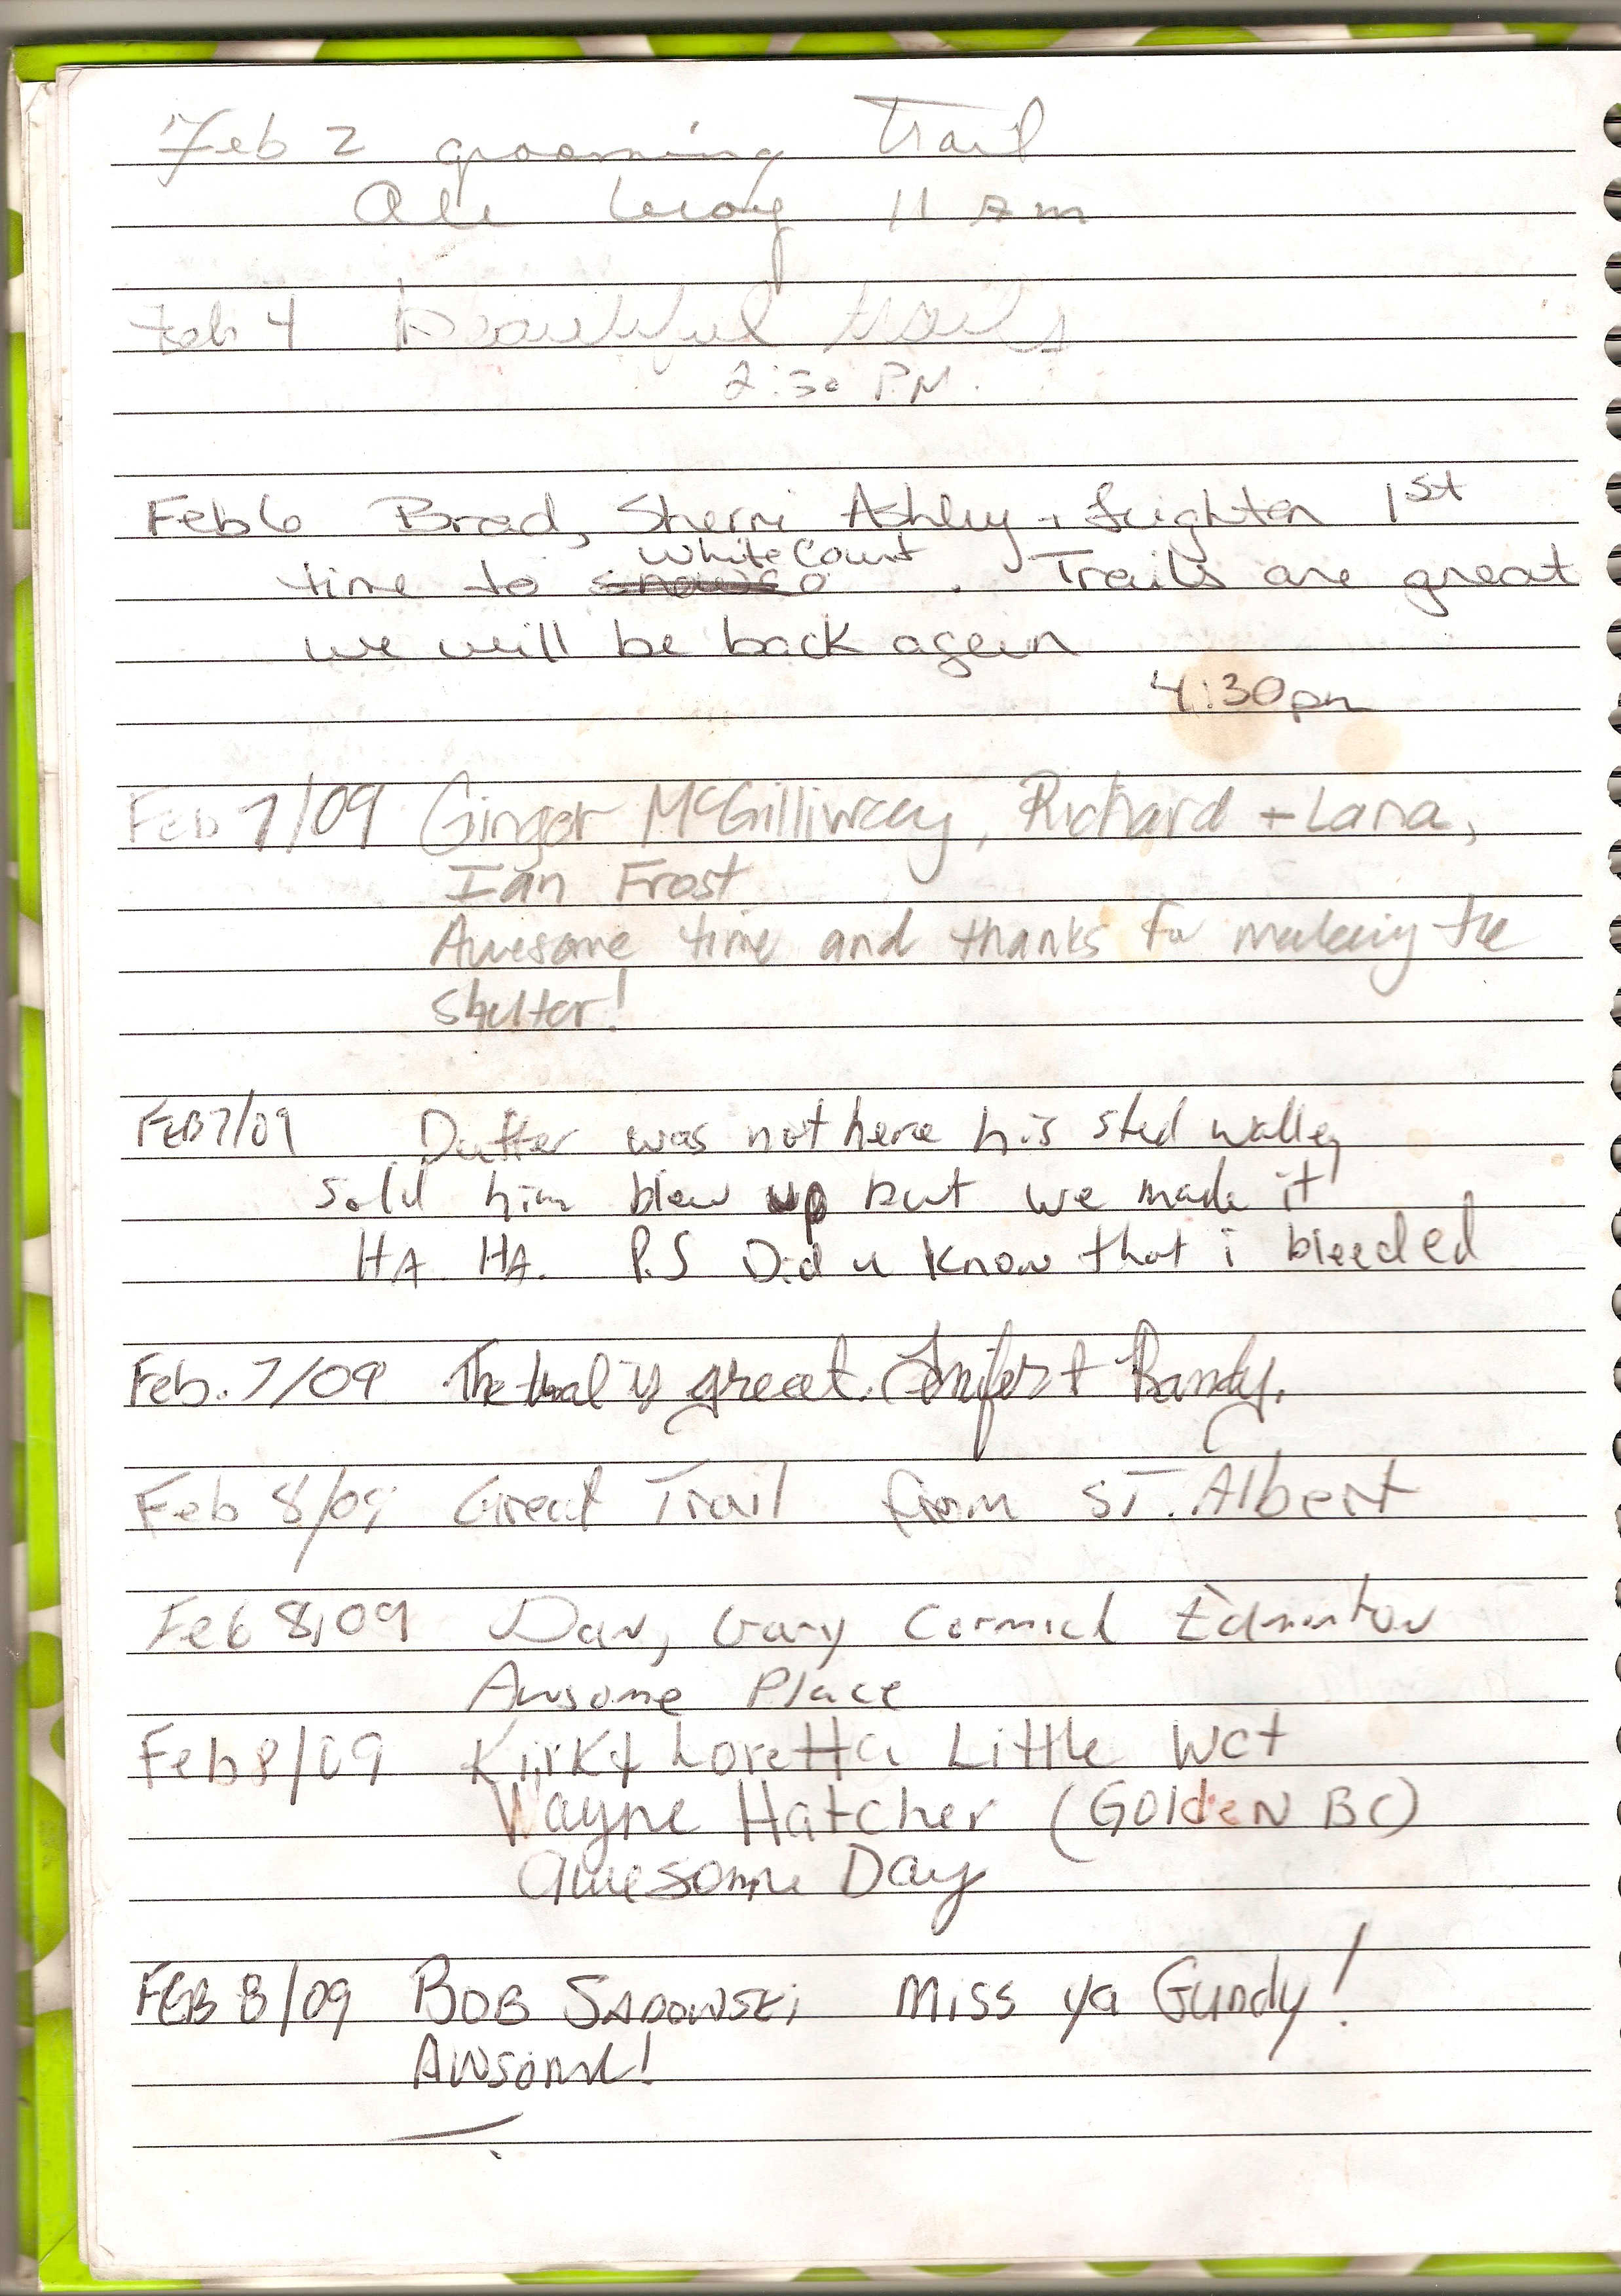 Feb 2 grooming Trail
11 Am
Feb 4 Beautiful trails
2:30 P.M.
Feb 6 Brad, Sherri Ashley + Leighton 1st
WhiteCourt
time to . Trails are great
we will be back again
4:30pm
Feb 7/09 Ginger McGillivray, Richard + Lana,
Ian Frost
Awesome time and thanks for making the
shelter!
FEB 7/09 Duffer was not here his sled walley
sold him blew up but we made it
HA HA. P.S Did u know that i bleeded
Feb. 7/09 The trail is great. + Randy.
Feb 8/09 Great Trail from ST. Albert
Feb 8,09 Dan, Gary Cormick Edmonton
Awsome Place
Feb 8/09 Kirk + Loretta Little Wct
Wayne Hatcher (Golden BC)
awesome Day
FEB 8/09 BOB SADOWSKi Miss ya Gundy!
AWSOME!